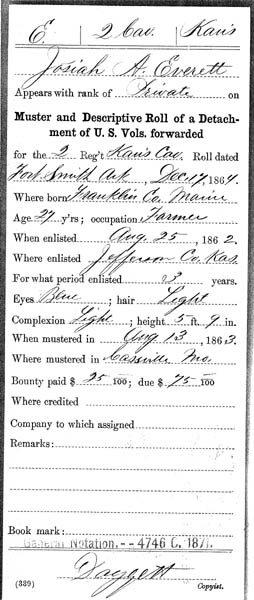 E. | 2 Cav. | Kans
Josiah A. Everett
Appears with rank of Private on
Muster and Descriptive Roll of a Detach-
ment of U. S. Vols. forwarded
for the 2 Reg't Kans Cav. Roll dated
Fort Smith Ark, Dec 17, 1864.
Where born Franklin Co. Maine
Age 27 y'rs; occupation Farmer
When enlisted Aug. 25, 1862.
Where enlisted Jefferson Co. Kas.
For what period enlisted 3 years.
Eyes Blue; hair Light
Complexion Light; height 5 ft. 9 in.
When mustered in Aug 13, 1863.
Where mustered in Cassville Mo.
Bounty paid $ 25 100; due $ 75 100
Where credited
Company to which assigned
Remarks:
Book mark:
General Notation. -- 4746 C. 1871.
Daggett
(339) Copyist.